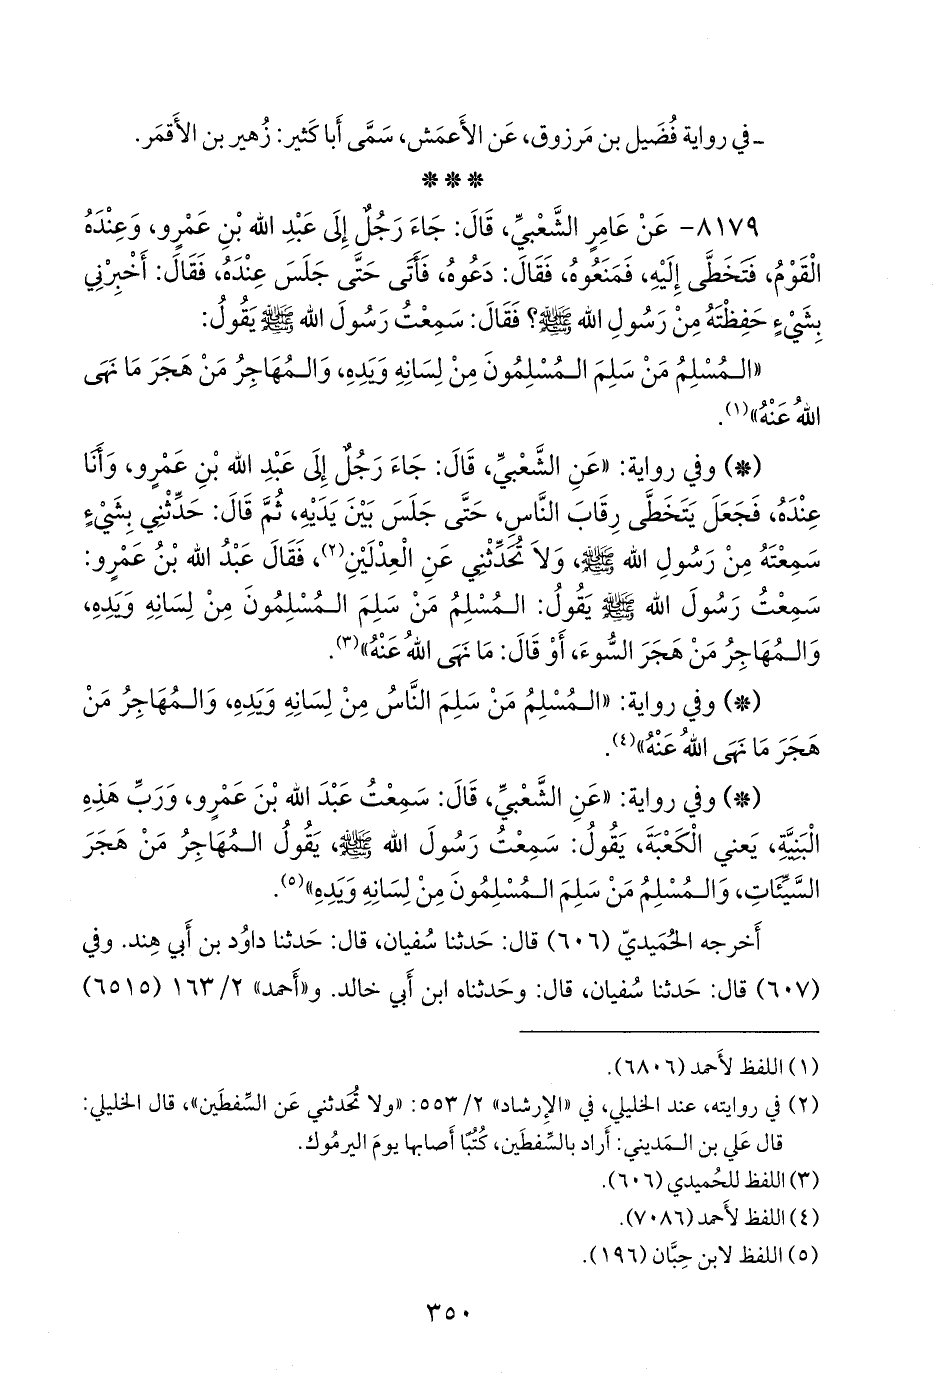 ـ في رواية فُضَيل بن مَرزوق، عَن الأَعمَش، سَمَّى أَبا كَثير: زُهير بن الأَقمَر.
* * *
٨١٧٩- عَنْ عَامِرٍ الشَّعْبِيِّ، قَالَ: جَاءَ رَجُلٌ إِلَى عَبْدِ الله بْنِ عَمْرٍو، وَعِنْدَهُ
الْقَوْمُ، فَتَخَطَّى إِلَيْهِ، فَمَنَعُوهُ، فَقَالَ: دَعُوهُ، فَأَتَى حَتَّى جَلَسَ عِنْدَهُ، فَقَالَ: أَخْبِرْنِي
بِشَيْءٍ حَفِظْتَهُ مِنْ رَسُولِ الله ﷺ؟ فَقَالَ: سَمِعْتُ رَسُولَ الله ﷺ يَقُولُ:
«الـمُسْلِمُ مَنْ سَلِمَ الـمُسْلِمُونَ مِنْ لِسَانِهِ وَيَدِهِ، وَالـمُهَاجِرُ مَنْ هَجَرَ مَا نَهَى
اللهُ عَنْهُ»(١).
(*) وفي رواية: «عَنِ الشَّعْبِيِّ، قَالَ: جَاءَ رَجُلٌ إِلَى عَبْدِ الله بْنِ عَمْرٍو، وَأَنَا
عِنْدَهُ، فَجَعَلَ يَتَخَطَّى رِقَابَ النَّاسِ، حَتَّى جَلَسَ بَيْنَ يَدَيْهِ، ثُمَّ قَالَ: حَدِّثْنِي بِشَيْءٍ
سَمِعْتَهُ مِنْ رَسُولِ الله ﷺ، وَلاَ تُحَدِّثْنِي عَنِ الْعِدْلَيْنِ(٢)، فَقَالَ عَبْدُ الله بْنُ عَمْرٍو:
سَمِعْتُ رَسُولَ الله ﷺ يَقُولُ: الـمُسْلِمُ مَنْ سَلِمَ الـمُسْلِمُونَ مِنْ لِسَانِهِ وَيَدِهِ،
وَالـمُهَاجِرُ مَنْ هَجَرَ السُّوءَ، أَوْ قَالَ: مَا نَهَى اللهُ عَنْهُ»(٣).
(*) وفي رواية: «الـمُسْلِمُ مَنْ سَلِمَ النَّاسُ مِنْ لِسَانِهِ وَيَدِهِ، وَالـمُهَاجِرُ مَنْ
هَجَرَ مَا نَهَى اللهُ عَنْهُ»(٤).
(*) وفي رواية: «عَنِ الشَّعْبِيِّ، قَالَ: سَمِعْتُ عَبْدَ الله بْنَ عَمْرٍو، وَرَبِّ هَذِهِ
الْبَنِيَّةِ، يَعني الْكَعْبَةَ، يَقُولُ: سَمِعْتُ رَسُولَ الله ﷺ، يَقُولُ الـمُهَاجِرُ مَنْ هَجَرَ
السَّيِّئَاتِ، وَالـمُسْلِمُ مَنْ سَلِمَ الـمُسْلِمُونَ مِنْ لِسَانِهِ وَيَدِهِ»(٥).
أَخرجه الحُمَيديّ (٦٠٦) قال: حَدثنا سُفيان، قال: حَدثنا داوُد بن أَبي هِند. وفي
(٦٠٧) قال: حَدثنا سُفيان، قال: وحَدثناه ابن أَبي خالد. و«أَحمد» ٢/ ١٦٣ (٦٥١٥)
(١) اللفظ لأَحمد (٦٨٠٦).
(٢) في روايته، عند الخليلي، في «الإِرشاد» ٢/ ٥٥٣: «ولا تُحَدثني عَن السِّفطَين»، قال الخليلي:
قال عَلي بن الـمَديني: أَراد بالسِّفطَين، كُتُبًا أَصابها يومَ اليرمُوك.
(٣) اللفظ للحُميدي (٦٠٦).
(٤) اللفظ لأَحمد (٧٠٨٦).
(٥) اللفظ لابن حِبَّان (١٩٦).
٣٥٠